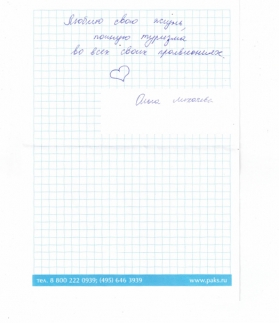 Люблю свою жизнь,
полную туризма
во всех своих проявлениях.
Ольга
ТЕЛ. 8 800 222 0939; (495) 646 3939
www.paks.ru